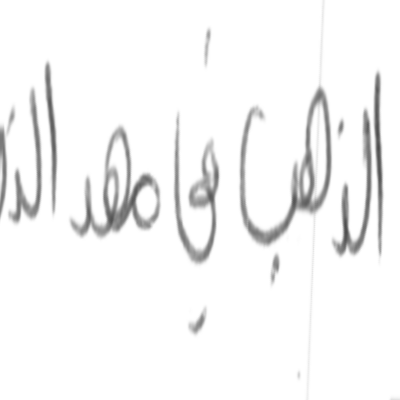 الذهب في مهد الذ